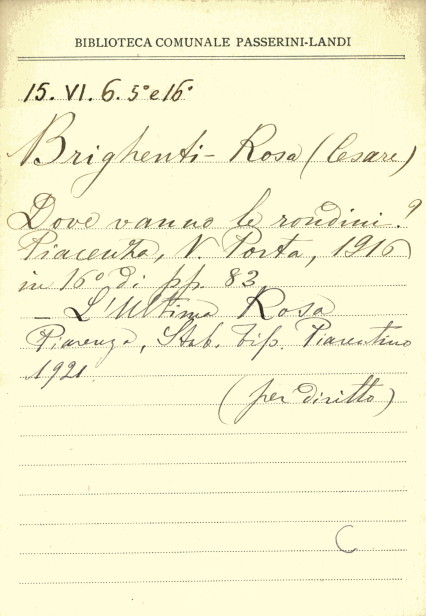 BIBLIOTECA COMUNALE PASSERINI-LANDI
15. VI. 6. 5° e 16°
Brighenti - Rosa (Cesare)
Dove vanno le rondini?
Piacenza, V. Porta, 1916
in 16° di pp. 83
- L'Ultima Rosa
Piacenza, Stab. Tip. Piacentino
1921.
(per diritto)
C